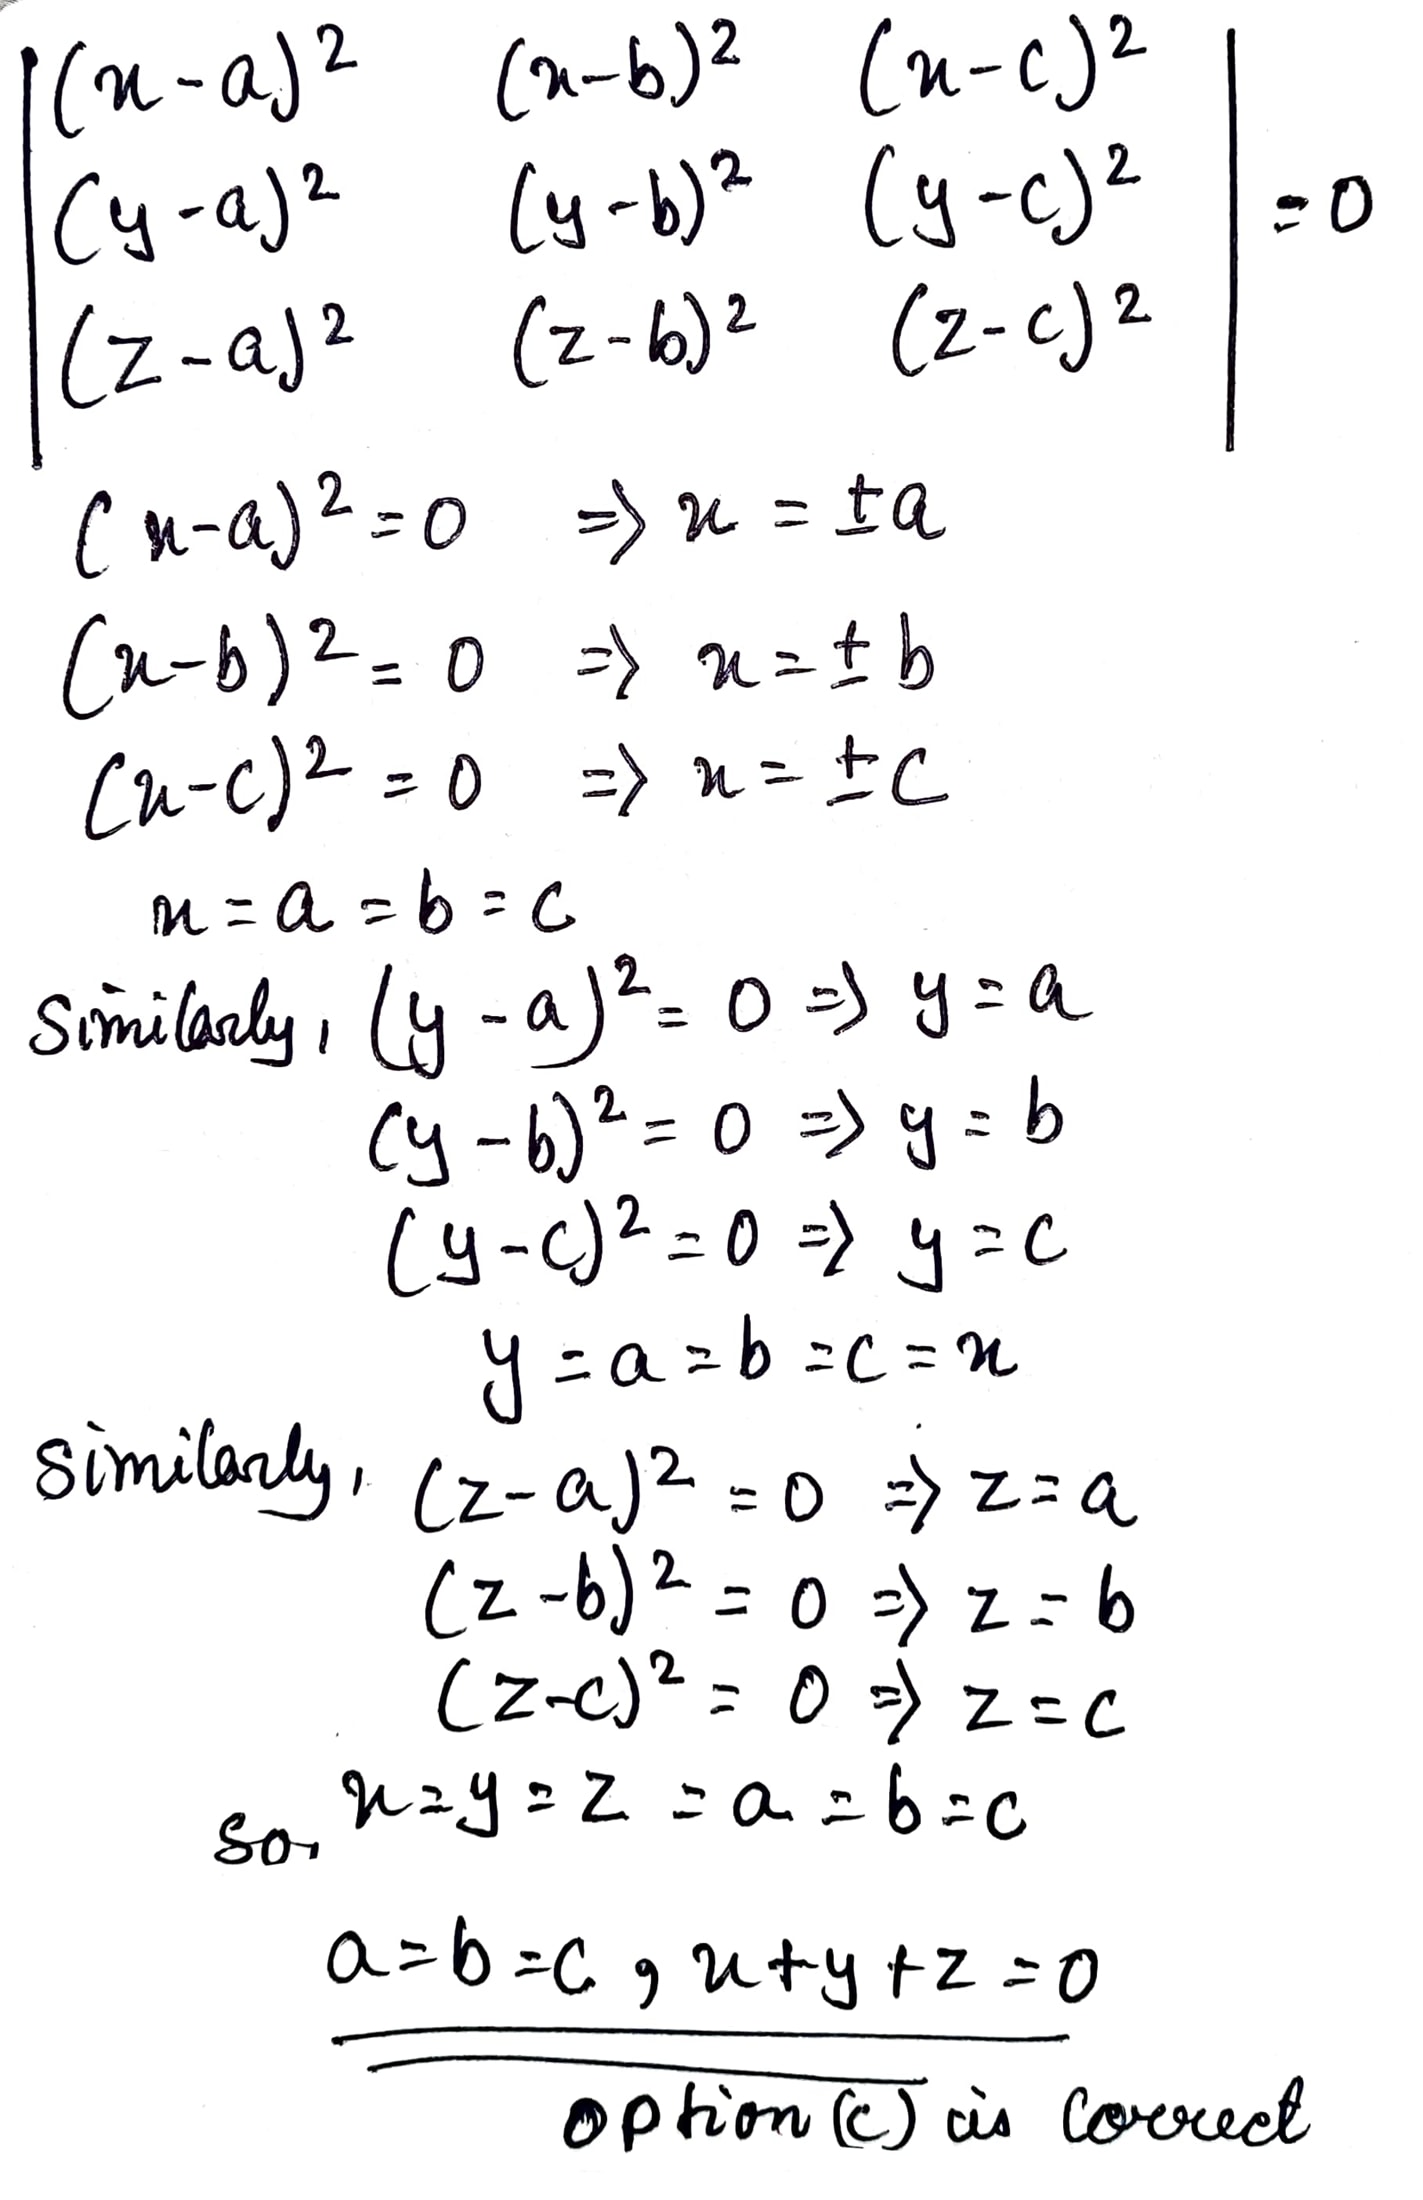 | (x-a)² (x-b)² (x-c)² |
| (y-a)² (y-b)² (y-c)² | = 0
| (z-a)² (z-b)² (z-c)² |
(x-a)² = 0 => x = ±a
(x-b)² = 0 => x = ±b
(x-c)² = 0 => x = ±c
x = a = b = c
Similarly, (y-a)² = 0 => y = a
(y-b)² = 0 => y = b
(y-c)² = 0 => y = c
y = a = b = c = x
Similarly, (z-a)² = 0 => z = a
(z-b)² = 0 => z = b
(z-c)² = 0 => z = c
So, x = y = z = a = b = c
a = b = c, x + y + z = 0
option (c) is correct